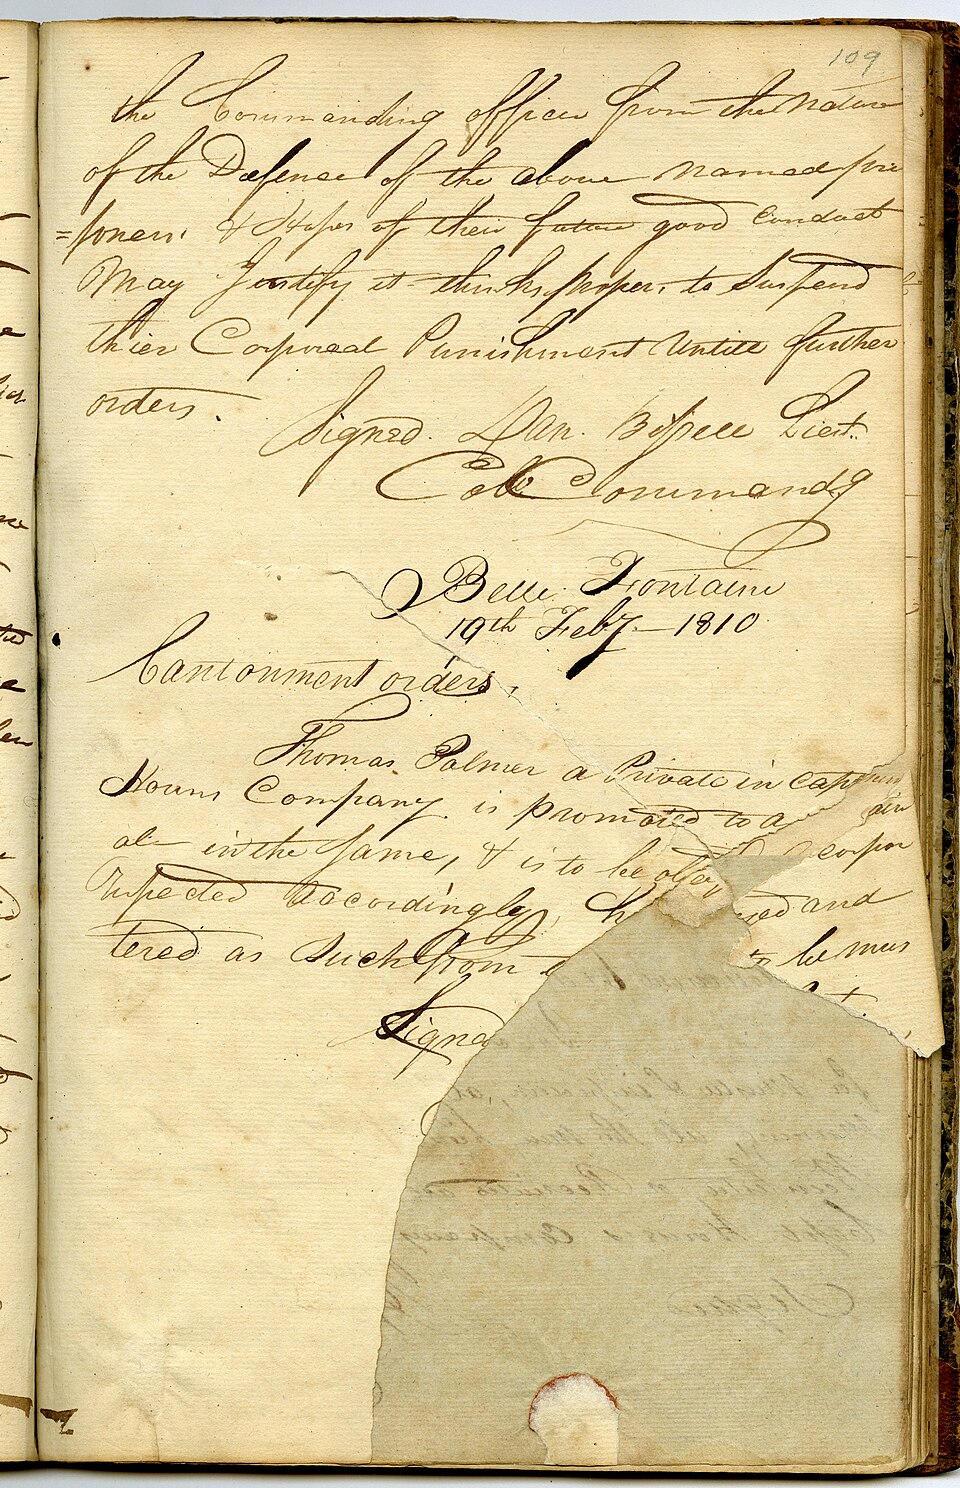 109
the Commanding officer from the Nature
of the Defence of the above named pri
=soners, & Hopes of their future good Conduct
May Justify it thinks proper, to Suspend
thier Corporeal Punishment Untill further
orders.
Signed. Dan. Bissell Lieut.
Col. Commandg
Belle Fontaine
19th Feby — 1810
Cantonment orders,
Thomas Palmer a Private in capt
Company is promoted to a
in the same, & is to be obey corpor
respected accordingly, and
tered as Such from to be mus
Signed